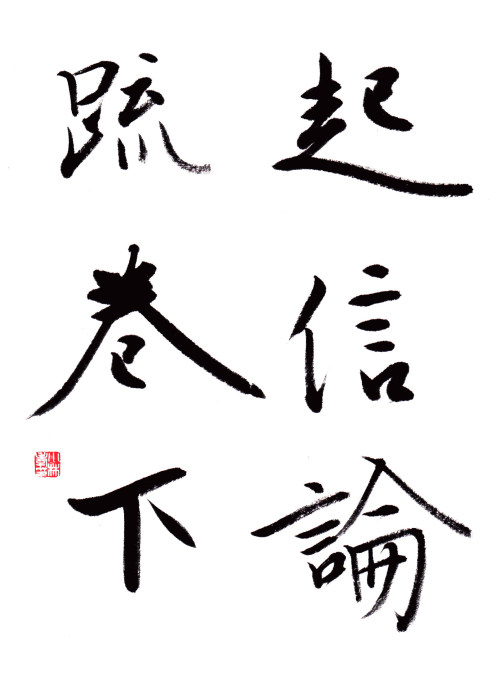 起信論
疏卷下